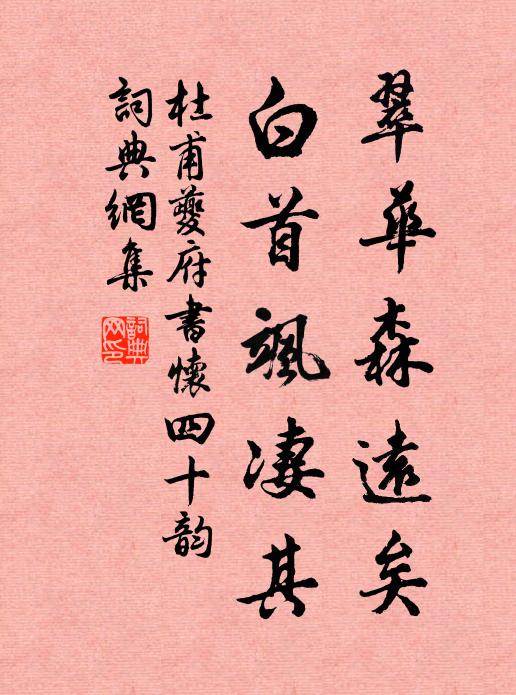 翠華森遠矣
白首颯淒其
杜甫夔府書懷四十韵
詞典網集
詞典网印